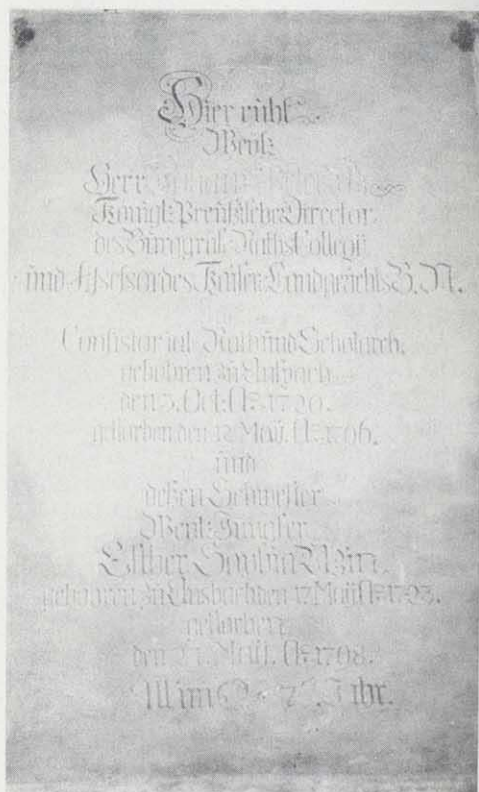 Hier ruht
Weyl:
Herr
Königl: Preußische Director
des Burggräf. Raths Collegii
und Assessor des Kaiser. Landgerichts B. N.
Consistorial Rath und Scholarch.
gebohren zu Anspach
den 3. Oct: Aº: 1720.
gestorben den 12 Maÿ. Aº: 1796.
und
deßen Schwester
Weyl: Jungfer
Esther Sophia Uzin.
gebohren zu Ansbach den 17 Maÿ Aº: 1723.
gestorben
den Maÿ. Aº: 1798.
Jahr.